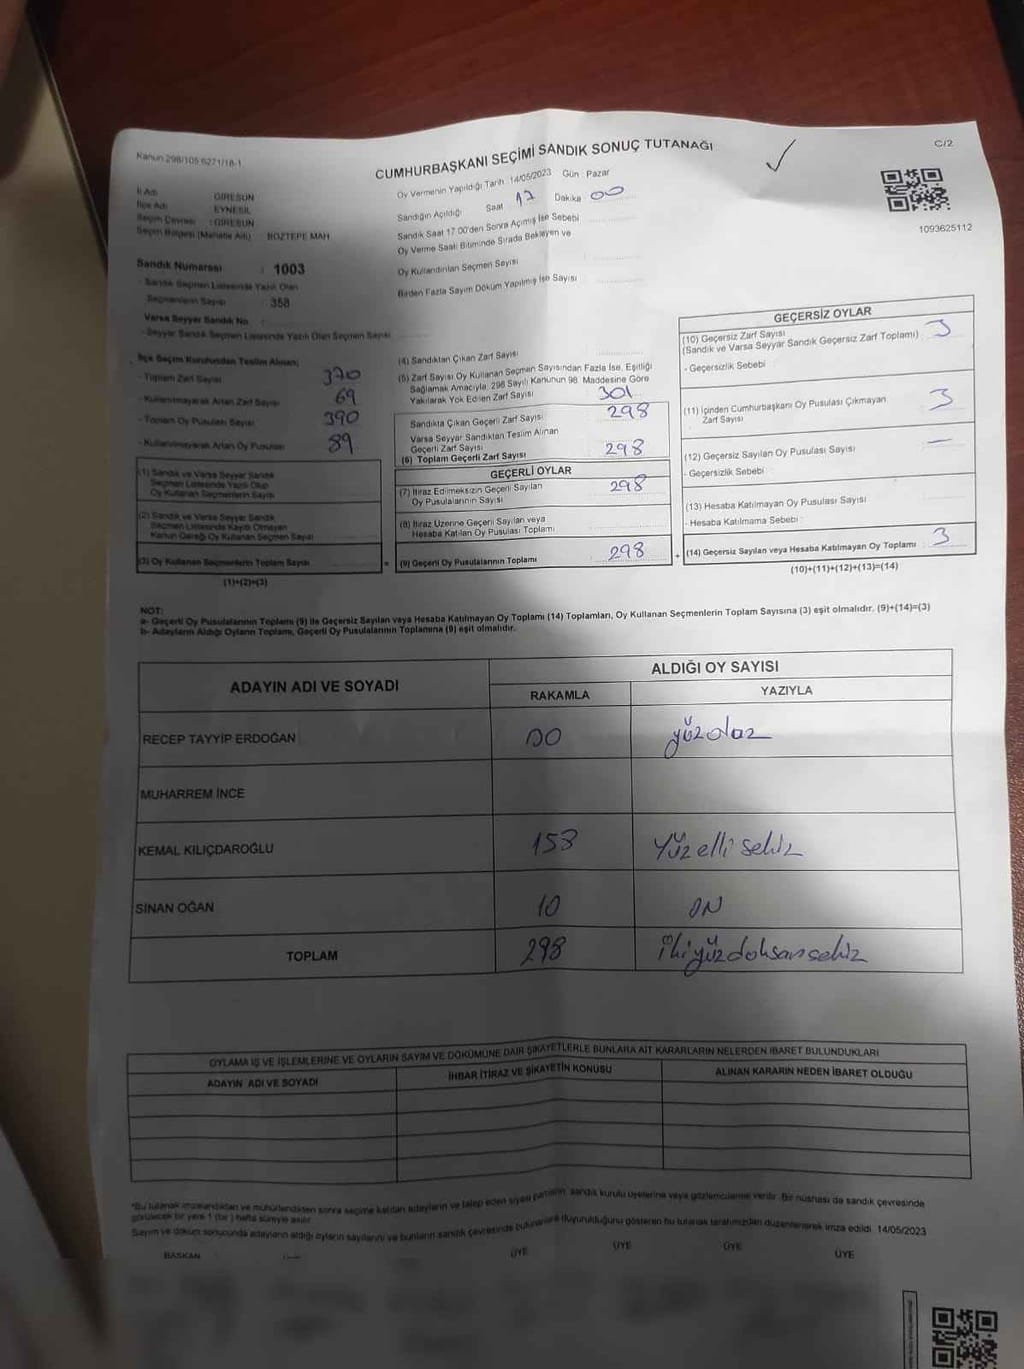 Kanun 298/105 6271/18-1
CUMHURBAŞKANI SEÇİMİ SANDIK SONUÇ TUTANAĞI
C/2
İl Adı : GİRESUN
İlçe Adı : EYNESİL
Seçim Çevresi : GİRESUN
Seçim Bölgesi (Mahalle Adı) : BOZTEPE MAH
Sandık Numarası : 1003
Sandık Seçmen Listesinde Yazılı Olan
Seçmenlerin Sayısı : 358
Varsa Seyyar Sandık No :
- Seyyar Sandık Seçmen Listesinde Yazılı Olan Seçmen Sayısı
Oy Vermenin Yapıldığı Tarih 14/05/2023 Gün : Pazar
Sandığın Açıldığı Saat 17 Dakika 00
Sandık Saat 17.00'den Sonra Açılmış İse Sebebi
Oy Verme Saati Bitiminde Sırada Bekleyen ve
Oy Kullandırılan Seçmen Sayısı
Birden Fazla Sayım Döküm Yapılmış İse Sayısı
1093625112
İlçe Seçim Kurulundan Teslim Alınan;
- Toplam Zarf Sayısı 370
- Kullanılmayarak Artan Zarf Sayısı 69
- Toplam Oy Pusulası Sayısı 390
- Kullanılmayarak Artan Oy Pusulası 89
(1) Sandık ve Varsa Seyyar Sandık
Seçmen Listesinde Yazılı Olup
Oy Kullanan Seçmenlerin Sayısı
(2) Sandık ve Varsa Seyyar Sandık
Seçmen Listesinde Kayıtlı Olmayan
Kanun Gereği Oy Kullanan Seçmen Sayısı
(3) Oy Kullanan Seçmenlerin Toplam Sayısı
(1)+(2)=(3)
(4) Sandıktan Çıkan Zarf Sayısı
(5) Zarf Sayısı Oy Kullanan Seçmen Sayısından Fazla İse, Eşitliği
Sağlamak Amacıyla; 298 Sayılı Kanunun 98. Maddesine Göre
Yakılarak Yok Edilen Zarf Sayısı 301
Sandıkta Çıkan Geçerli Zarf Sayısı 298
Varsa Seyyar Sandıktan Teslim Alınan
Geçerli Zarf Sayısı
(6) Toplam Geçerli Zarf Sayısı 298
GEÇERLİ OYLAR
(7) İtiraz Edilmeksizin Geçerli Sayılan
Oy Pusulalarının Sayısı 298
(8) İtiraz Üzerine Geçerli Sayılan veya
Hesaba Katılan Oy Pusulası Toplamı
(9) Geçerli Oy Pusulalarının Toplamı 298
GEÇERSİZ OYLAR
(10) Geçersiz Zarf Sayısı 3
(Sandık ve Varsa Seyyar Sandık Geçersiz Zarf Toplamı)
- Geçersizlik Sebebi
(11) İçinden Cumhurbaşkanı Oy Pusulası Çıkmayan 3
Zarf Sayısı
(12) Geçersiz Sayılan Oy Pusulası Sayısı –
- Geçersizlik Sebebi
(13) Hesaba Katılmayan Oy Pusulası Sayısı
- Hesaba Katılmama Sebebi
(14) Geçersiz Sayılan veya Hesaba Katılmayan Oy Toplamı 3
(10)+(11)+(12)+(13)=(14)
NOT:
a- Geçerli Oy Pusulalarının Toplamı (9) ile Geçersiz Sayılan veya Hesaba Katılmayan Oy Toplamı (14) Toplamları, Oy Kullanan Seçmenlerin Toplam Sayısına (3) eşit olmalıdır. (9)+(14)=(3)
b- Adayların Aldığı Oyların Toplamı, Geçerli Oy Pusulalarının Toplamına (9) eşit olmalıdır.
ADAYIN ADI VE SOYADI
ALDIĞI OY SAYISI
RAKAMLA YAZIYLA
RECEP TAYYİP ERDOĞAN
MUHARREM İNCE
KEMAL KILIÇDAROĞLU 158 Yüz elli sekiz
SİNAN OĞAN 10 ON
TOPLAM 298 ikiyüzdoksansekiz
OYLAMA İŞ VE İŞLEMLERİNE VE OYLARIN SAYIM VE DÖKÜMÜNE DAİR ŞİKAYETLERLE BUNLARA AİT KARARLARIN NELERDEN İBARET BULUNDUKLARI
ADAYIN ADI VE SOYADI İHBAR İTİRAZ VE ŞİKAYETİN KONUSU ALINAN KARARIN NEDEN İBARET OLDUĞU
*Bu tutanak imzalandıktan ve mühürlendikten sonra seçime katılan adayların ve talep eden siyasi partilerin, sandık kurulu üyelerine veya gözlemcilerine verilir. Bir nüshası da sandık çevresinde
görülecek bir yere 1 (bir) hafta süreyle asılır.
Sayım ve döküm sonucunda adayların aldığı oyların sayılarını ve bunların sandık çevresinde bulunanlara duyurulduğunu gösteren bu tutanak tarafımızdan düzenlenerek imza edildi. 14/05/2023
BAŞKAN ÜYE ÜYE ÜYE ÜYE